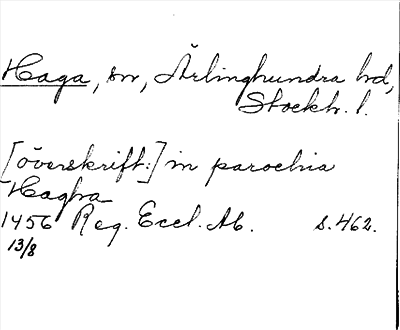 Haga, sn, Ärlinghundra hd,
Stockh. l.
[överskrift:] in parochia
Hagha
1456 Reg. Eccl. Ab. s. 462.
13/8